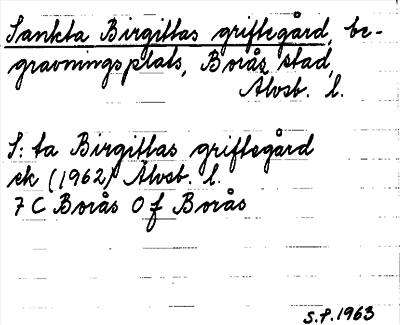 Sankta Birgittas griftegård, be-
gravningsplats, Borås stad,
Älvsb. l.
S:ta Birgittas griftegård
ek (1962) Älvsb. l.
7 C Borås Of Borås
S.P. 1963